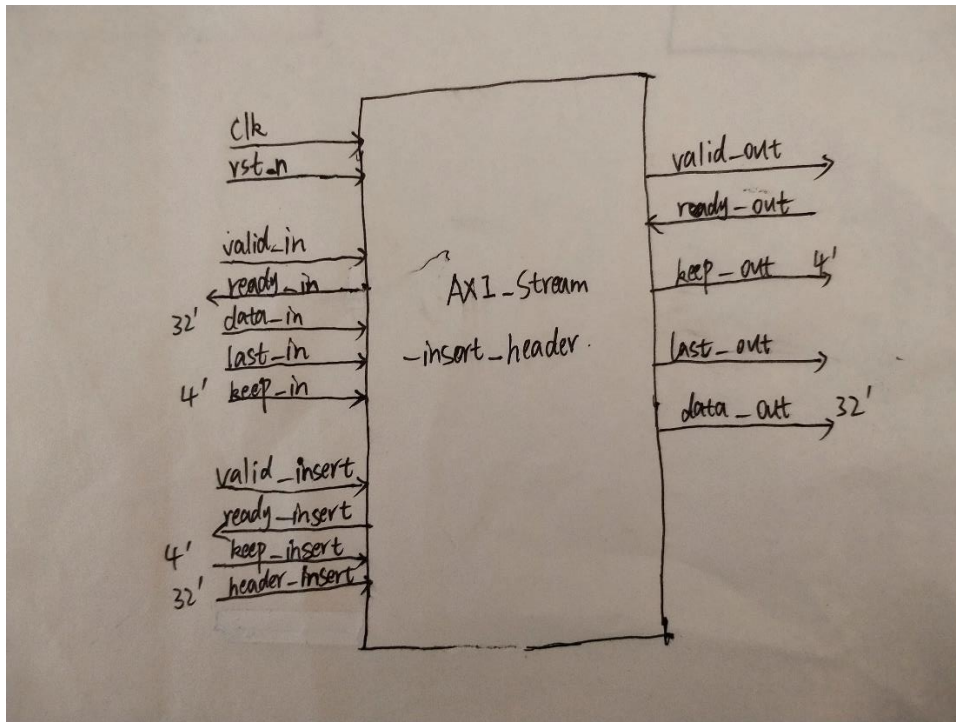 clk
rst_n
valid_in
ready_in
32' data_in
last_in
4' keep_in
valid_insert
ready_insert
4' keep_insert
32' header_insert
AXI_Stream
-insert_header.
valid_out
ready_out
keep_out 4'
last_out
data_out 32'